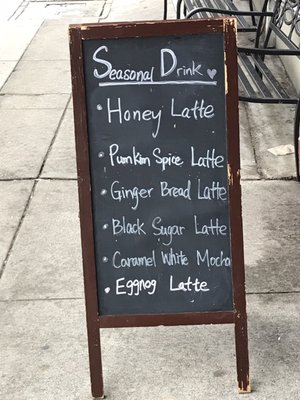 Seasonal Drink ♥
• Honey Latte
• Pumkin Spice Latte
• Ginger Bread Latte
• Black Sugar Latte
• Caramel White Mocha
• Eggnog Latte